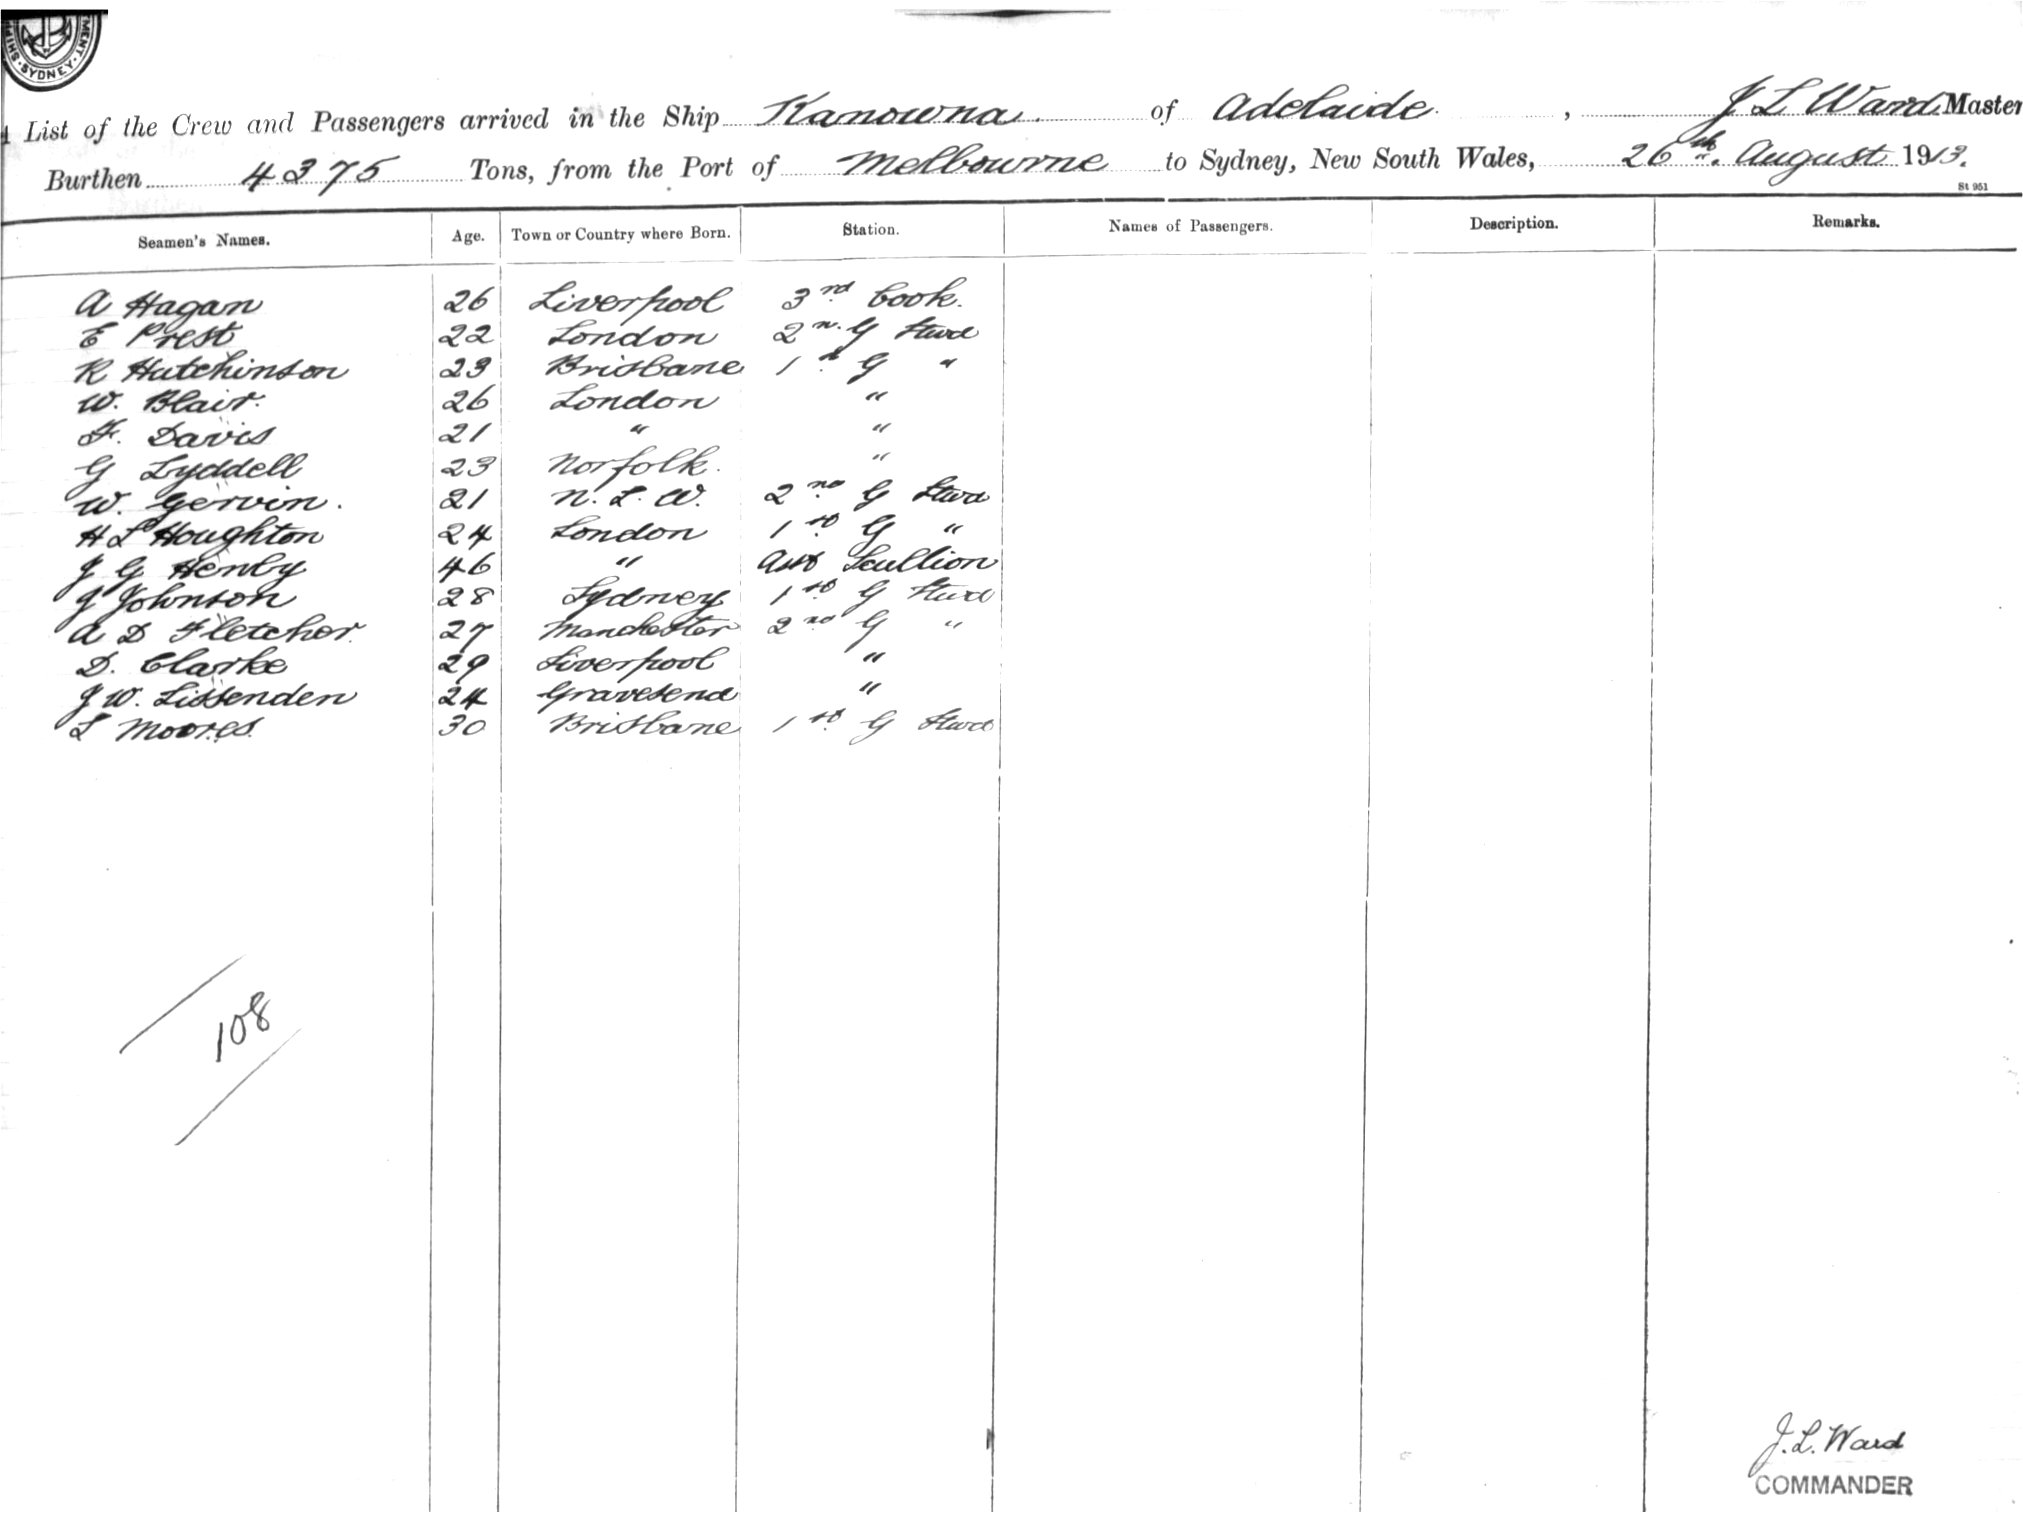 MENT. SYDNEY. SHIP
A List of the Crew and Passengers arrived in the Ship Kanowna. of Adelaide. , J L Ward Master
Burthen 4375 Tons, from the Port of Melbourne to Sydney, New South Wales, 26th. August 1913.
St 951
Seamen's Names. Age. Town or Country where Born. Station. Names of Passengers. Description. Remarks.
A Hagan 26 Liverpool 3rd Cook.
E Prest 22 London 2n. G Stwd
R Hutchinson 23 Brisbane 1st G "
W. Blair. 26 London "
F. Davis 21 " "
G Lyddell 23 Norfolk. "
W. Gervin. 21 N. S. W. 2nd G Stwd
H L Houghton 24 London 1st G "
J G Henby 46 " Asst Scullion
J Johnson 28 Sydney 1st G Stwd
A D Fletcher. 27 Manchester 2nd G "
D. Clarke 29 Liverpool "
J W. Lissenden 24 Gravesend "
L Moores. 30 Brisbane 1st G Stwd
108
J. L. Ward
COMMANDER